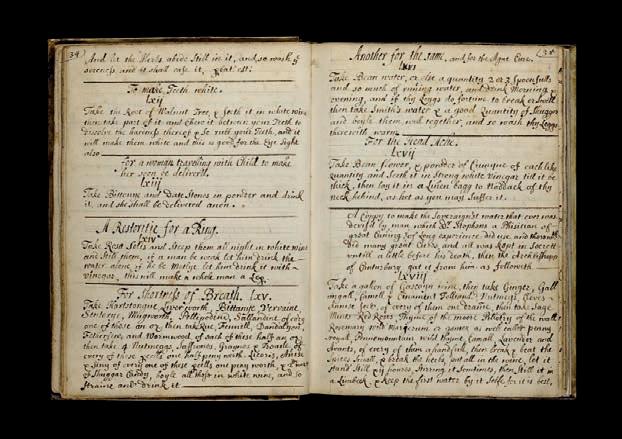 34
And let the Herbs abide Still in it, and so wash
and it shall ease it,
To make Teeth white.
Lxij
Take the Root of Walnut Tree & seeth it in white wine
then take part of it and Chew it between your Teeth to
dissolve the & so rubb your Teeth, and it
will make them white and this is good for the Eye Sight
also
for a woman travelling with Child to make
her soon be deliverd.
Lxiij
Take Bittonie and Date Stones in powder and drink
it, and she shall be delivered anon.
A Restoritie for a King.
Lxiv
Take Rosa Solis and Steep them all night in white wine
and Still them, if a man be weak let him drink the
water alone if he be let him drink it with
vinegar, this will make a whole man
For Shortness of Breath. Lxv.
Take Hartstongue Liverworth, Bittanie Vervaine
Mugworth, of every
one of these an oz. then take Rue, Fennell, Dandalyon,
and Wormwood of each of these half an oz.
then take 4 Nutmegs Saffronie, Graynes &
every of these half peny worth Licoris, Anise
& of every one of these one peny worth, &
of Shuggar Candy, boyle all these in white wine, and so
straine and drink it
35
Another for the same, and for the Ague Cure.
Lxvi
Take Bean water, or else a quantity 2 or 3 Spoonfulls
and so much of runing water, and drink Morning &
evening, and if thy Leggs do fortune to break or Swell
then take Smith's water & a good Quantity of
and boyle them well together, and so wash thy Leggs
therewith warm.
For the Head Ache.
Lxvij
Take Bean flower, & powder of of each like
Quantity and Seeth it in Strong white Vinegar till it be
thick, then lay it in a Linen bagg to of thy
neck behind, as hot as you may Suffer it.
A Coppy to make the Soveraignst water that ever was
devis'd by man which Dr. Stephens a Phisitian of
great Cuning & of long experience did use and therewith
did many great Cures and all was kept in Secrett
untill a little before his death, then the Arch Bishopp
of Canturbury gat it from him as followeth
Lxviij
Take a galon of Gascoign wine, then take Ginger, Gallingall,
Camell, Cinament Nutmegs, Cloves
of every of them one draime, then take Sage
Mints Red Roses Thyme of the more Pilletry of the wall
Rosemary wild Marjerum
royall, wild thyme Camell Lavender and
Avants, of every of them a handfull, then break & beat the
Spices Small, & break the herbs, put all in the wine, let it
stand Still xij houres, stirring it Somtimes, then Still it in
a Limbeck, & Keep the first water by it Selfe for it is best,